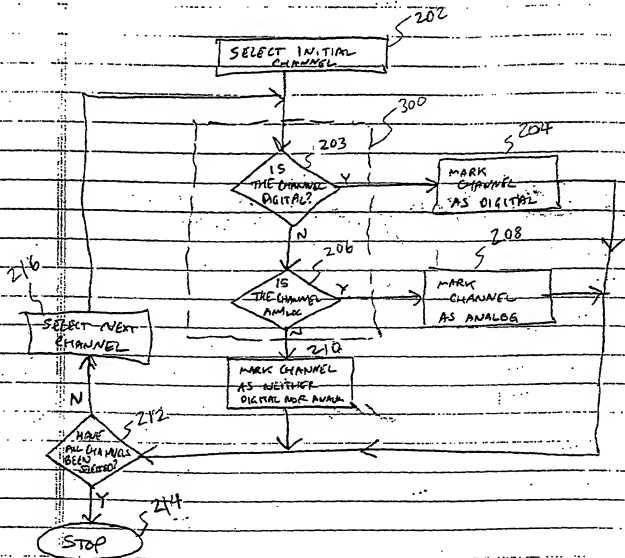 202
SELECT INITIAL
CHANNEL
300
203
IS
THE CHANNEL
DIGITAL?
Y
204
MARK
CHANNEL
AS DIGITAL
N
206
IS
THE CHANNEL
ANALOG
Y
208
MARK
CHANNEL
AS ANALOG
N
210
MARK CHANNEL
AS NEITHER
DIGITAL NOR ANALOG
216
SELECT NEXT
CHANNEL
N
212
HAVE
ALL CHANNELS
BEEN
SELECTED?
Y
214
STOP